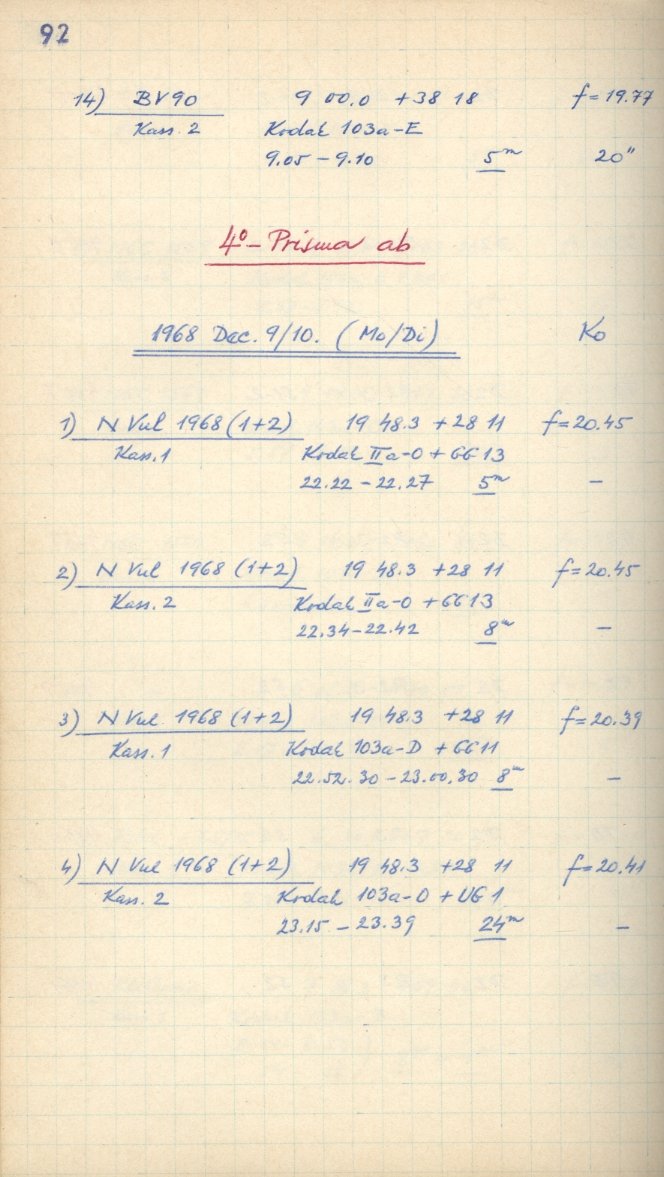 92
14) BV90 9 00.0 +38 18 f=19.77
Kass. 2 Kodak 103a-E
9.05 – 9.10 5m 20"
4°- Prisma ab
1968 Dec. 9/10. (Mo/Di) Ko
1) N Vul 1968 (1+2) 19 48.3 +28 11 f=20.45
Kass. 1 Kodak IIa-O + GG13
22.22 – 22.27 5m –
2) N Vul 1968 (1+2) 19 48.3 +28 11 f=20.45
Kass. 2 Kodak IIa-O + GG13
22.34 – 22.42 8m –
3) N Vul 1968 (1+2) 19 48.3 +28 11 f=20.39
Kass. 1 Kodak 103a-D + GG11
22.52.30 – 23.00.30 8m –
4) N Vul 1968 (1+2) 19 48.3 +28 11 f=20.41
Kass. 2 Kodak 103a-O + UG1
23.15 – 23.39 24m –